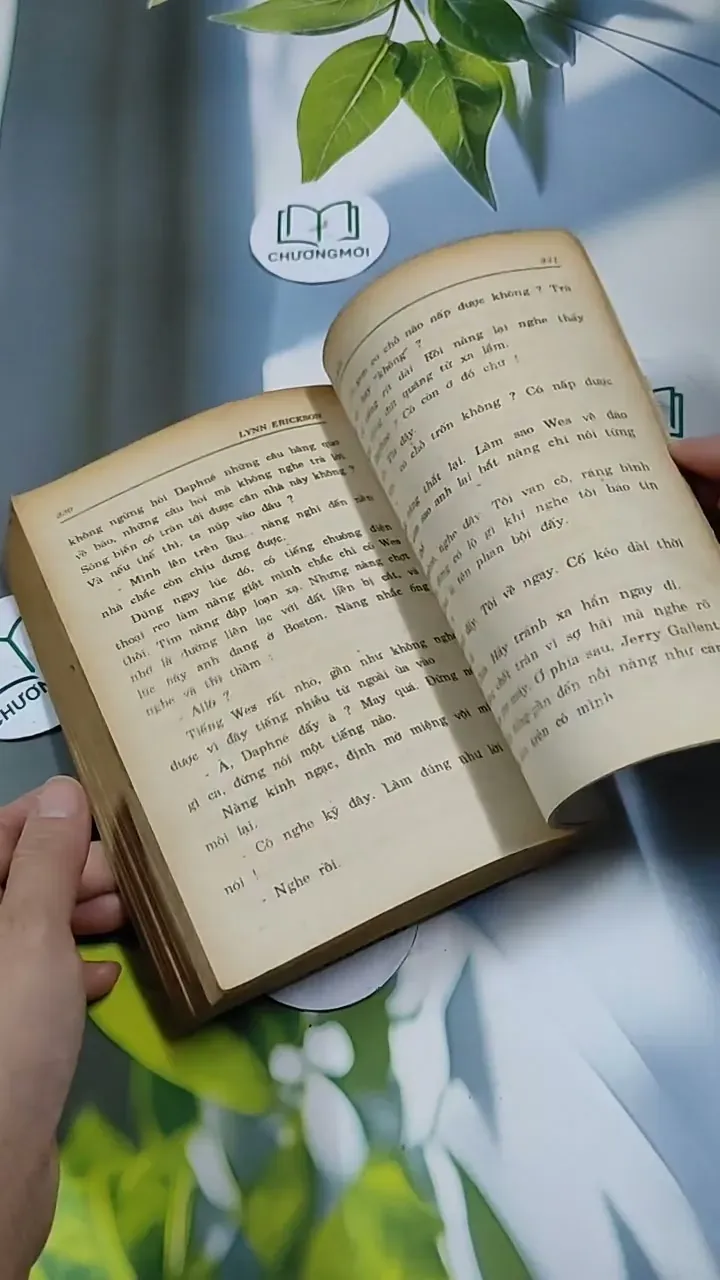 CHƯƠNGMỚI
LYNN ERICKSON
330
không ngừng hỏi Daphné những câu hàng quo
về bão, những câu hỏi mà không nghe trả lời
Sóng biển có tràn tới được căn nhà này không ?
Và nếu thế thì, ta núp vào đâu ?
- Mình lên trên lầu... nàng nghĩ đến nền
nhà chắc còn chịu đựng được.
Đúng ngay lúc đó, có tiếng chuông điện
thoại reo làm nàng giật mình chắc chỉ có Wes
thôi. Tim nàng đập loạn xạ. Nhưng nàng chợt
nhớ là đường liên lạc với đất liền bị cắt, và
lúc này anh đang ở Boston. Nàng nhấc ống
nghe và thì thầm :
- Allô ?
Tiếng Wes rất nhỏ, gần như không nghe
được vì đầy tiếng nhiễu từ ngoài ùa vào
- À, Daphné đấy à ? May quá. Đừng nói
gì cả, đừng nói một tiếng nào.
Nàng kinh ngạc, định mở miệng với
mời lại.
- Cô nghe kỹ đây. Làm đúng như lời
nói !
- Nghe rồi.
331
có chỗ nào nấp được không ? Trả
hay "không" ?
rít dài Rồi nàng lại nghe thấy
đứt quãng từ xa lắm.
? Cô còn ở đó chứ !
đây.
có chỗ trốn không ? Có nấp được
thắt lại. Làm sao Wes về đảo
sao anh lại bắt nàng chỉ nói từng
nghe đây. Tôi van cô, ráng bình
có lộ gì khi nghe tôi báo tin
tên phản bội đấy.
Tôi về ngay. Cố kéo dài thời
Hãy tránh xa hắn ngay đi.
chốt trân vì sợ hãi mà nghe rõ
máy. Ở phía sau, Jerry Gallent
gần đến nỗi nàng như cảm
trên cô mình
CHƯƠN